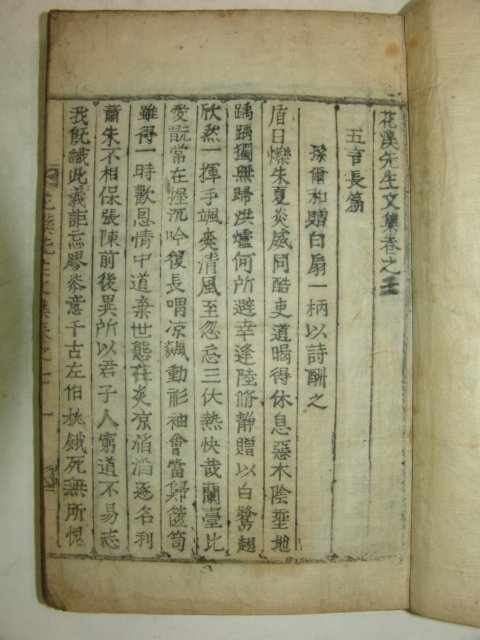 花溪先生文集卷之三
五言長篇
孫爾和贈白扇一柄以詩酬之
盾日爍朱夏炎威同酷吏道暍得休息惡木陰垂地
踽踽獨無歸洪爐何所避幸逢陸脩靜贈以白鷺翅
欣然一揮手颯爽清風至忽忘三伏熱快哉蘭臺比
愛翫常在涅沉吟復長喟凉飆動衫袖會當歸篋笥
雖得一時歡恩情中道棄世態在炎凉滔滔逐名利
蕭朱不相保張陳前後異所以君子人窮道不易志
我旣識此義詎忘膠桼意千古左伯桃餓死無所愧